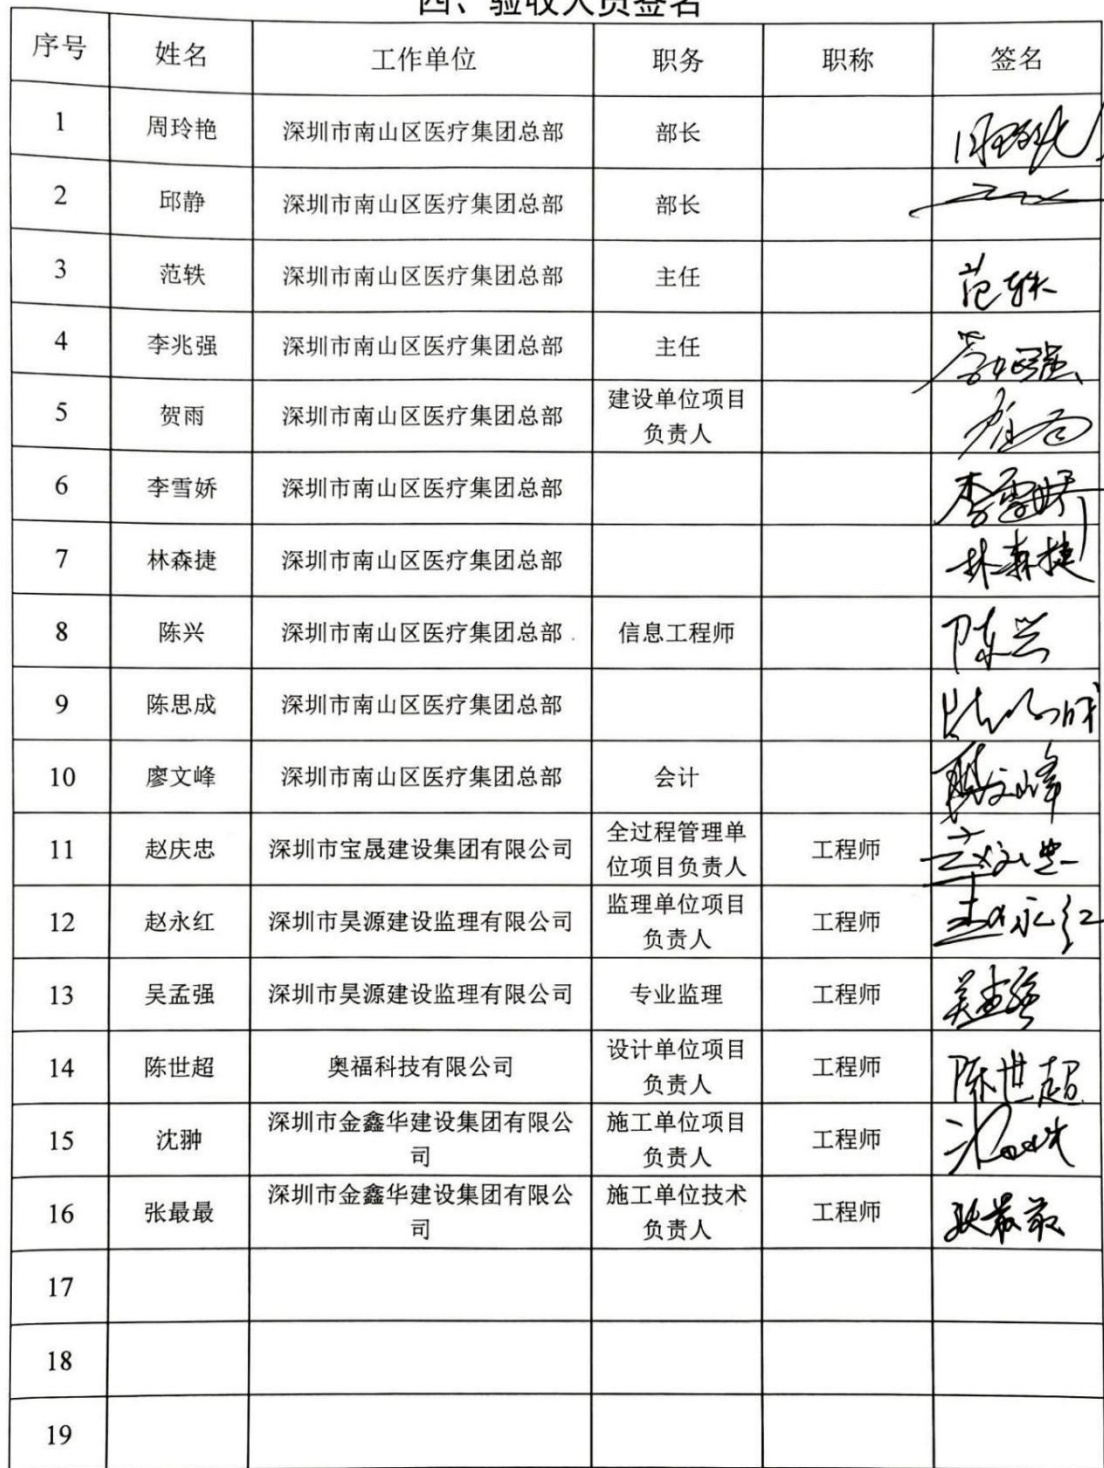 四、验收人员签名
序号 姓名 工作单位 职务 职称 签名
1 周玲艳 深圳市南山区医疗集团总部 部长
2 邱静 深圳市南山区医疗集团总部 部长
3 范轶 深圳市南山区医疗集团总部 主任 范轶
4 李兆强 深圳市南山区医疗集团总部 主任 李兆强
5 贺雨 深圳市南山区医疗集团总部 建设单位项目
负责人
6 李雪娇 深圳市南山区医疗集团总部 李雪娇
7 林森捷 深圳市南山区医疗集团总部 林森捷
8 陈兴 深圳市南山区医疗集团总部 信息工程师 陈兴
9 陈思成 深圳市南山区医疗集团总部
10 廖文峰 深圳市南山区医疗集团总部 会计 廖文峰
11 赵庆忠 深圳市宝晟建设集团有限公司 全过程管理单
位项目负责人 工程师
12 赵永红 深圳市昊源建设监理有限公司 监理单位项目
负责人 工程师 赵永红
13 吴孟强 深圳市昊源建设监理有限公司 专业监理 工程师 吴孟强
14 陈世超 奥福科技有限公司 设计单位项目
负责人 工程师 陈世超
15 沈翀 深圳市金鑫华建设集团有限公
司 施工单位项目
负责人 工程师
16 张最最 深圳市金鑫华建设集团有限公
司 施工单位技术
负责人 工程师 张最最
17
18
19